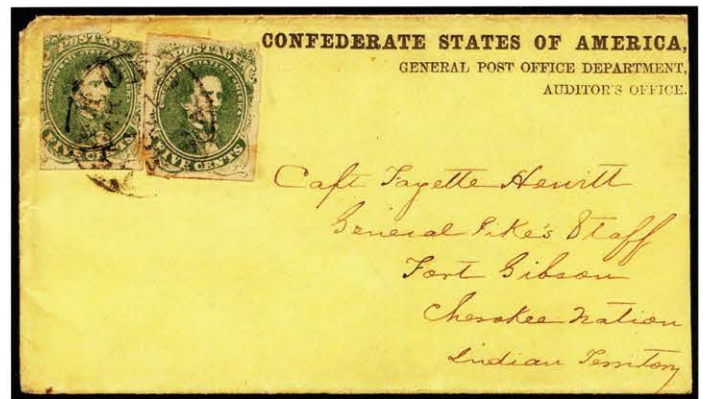 POSTAGE
FIVE CENTS
POSTAGE
FIVE CENTS
CONFEDERATE STATES OF AMERICA,
GENERAL POST OFFICE DEPARTMENT,
AUDITOR'S OFFICE.
Capt Fayette Hewitt
General Pike's Staff
Fort Gibson
Cherokee Nation
Indian Territory